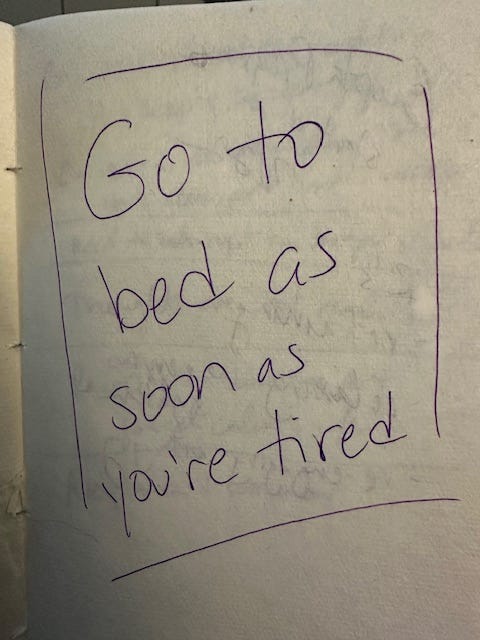 Go to
bed as
soon as
you're tired